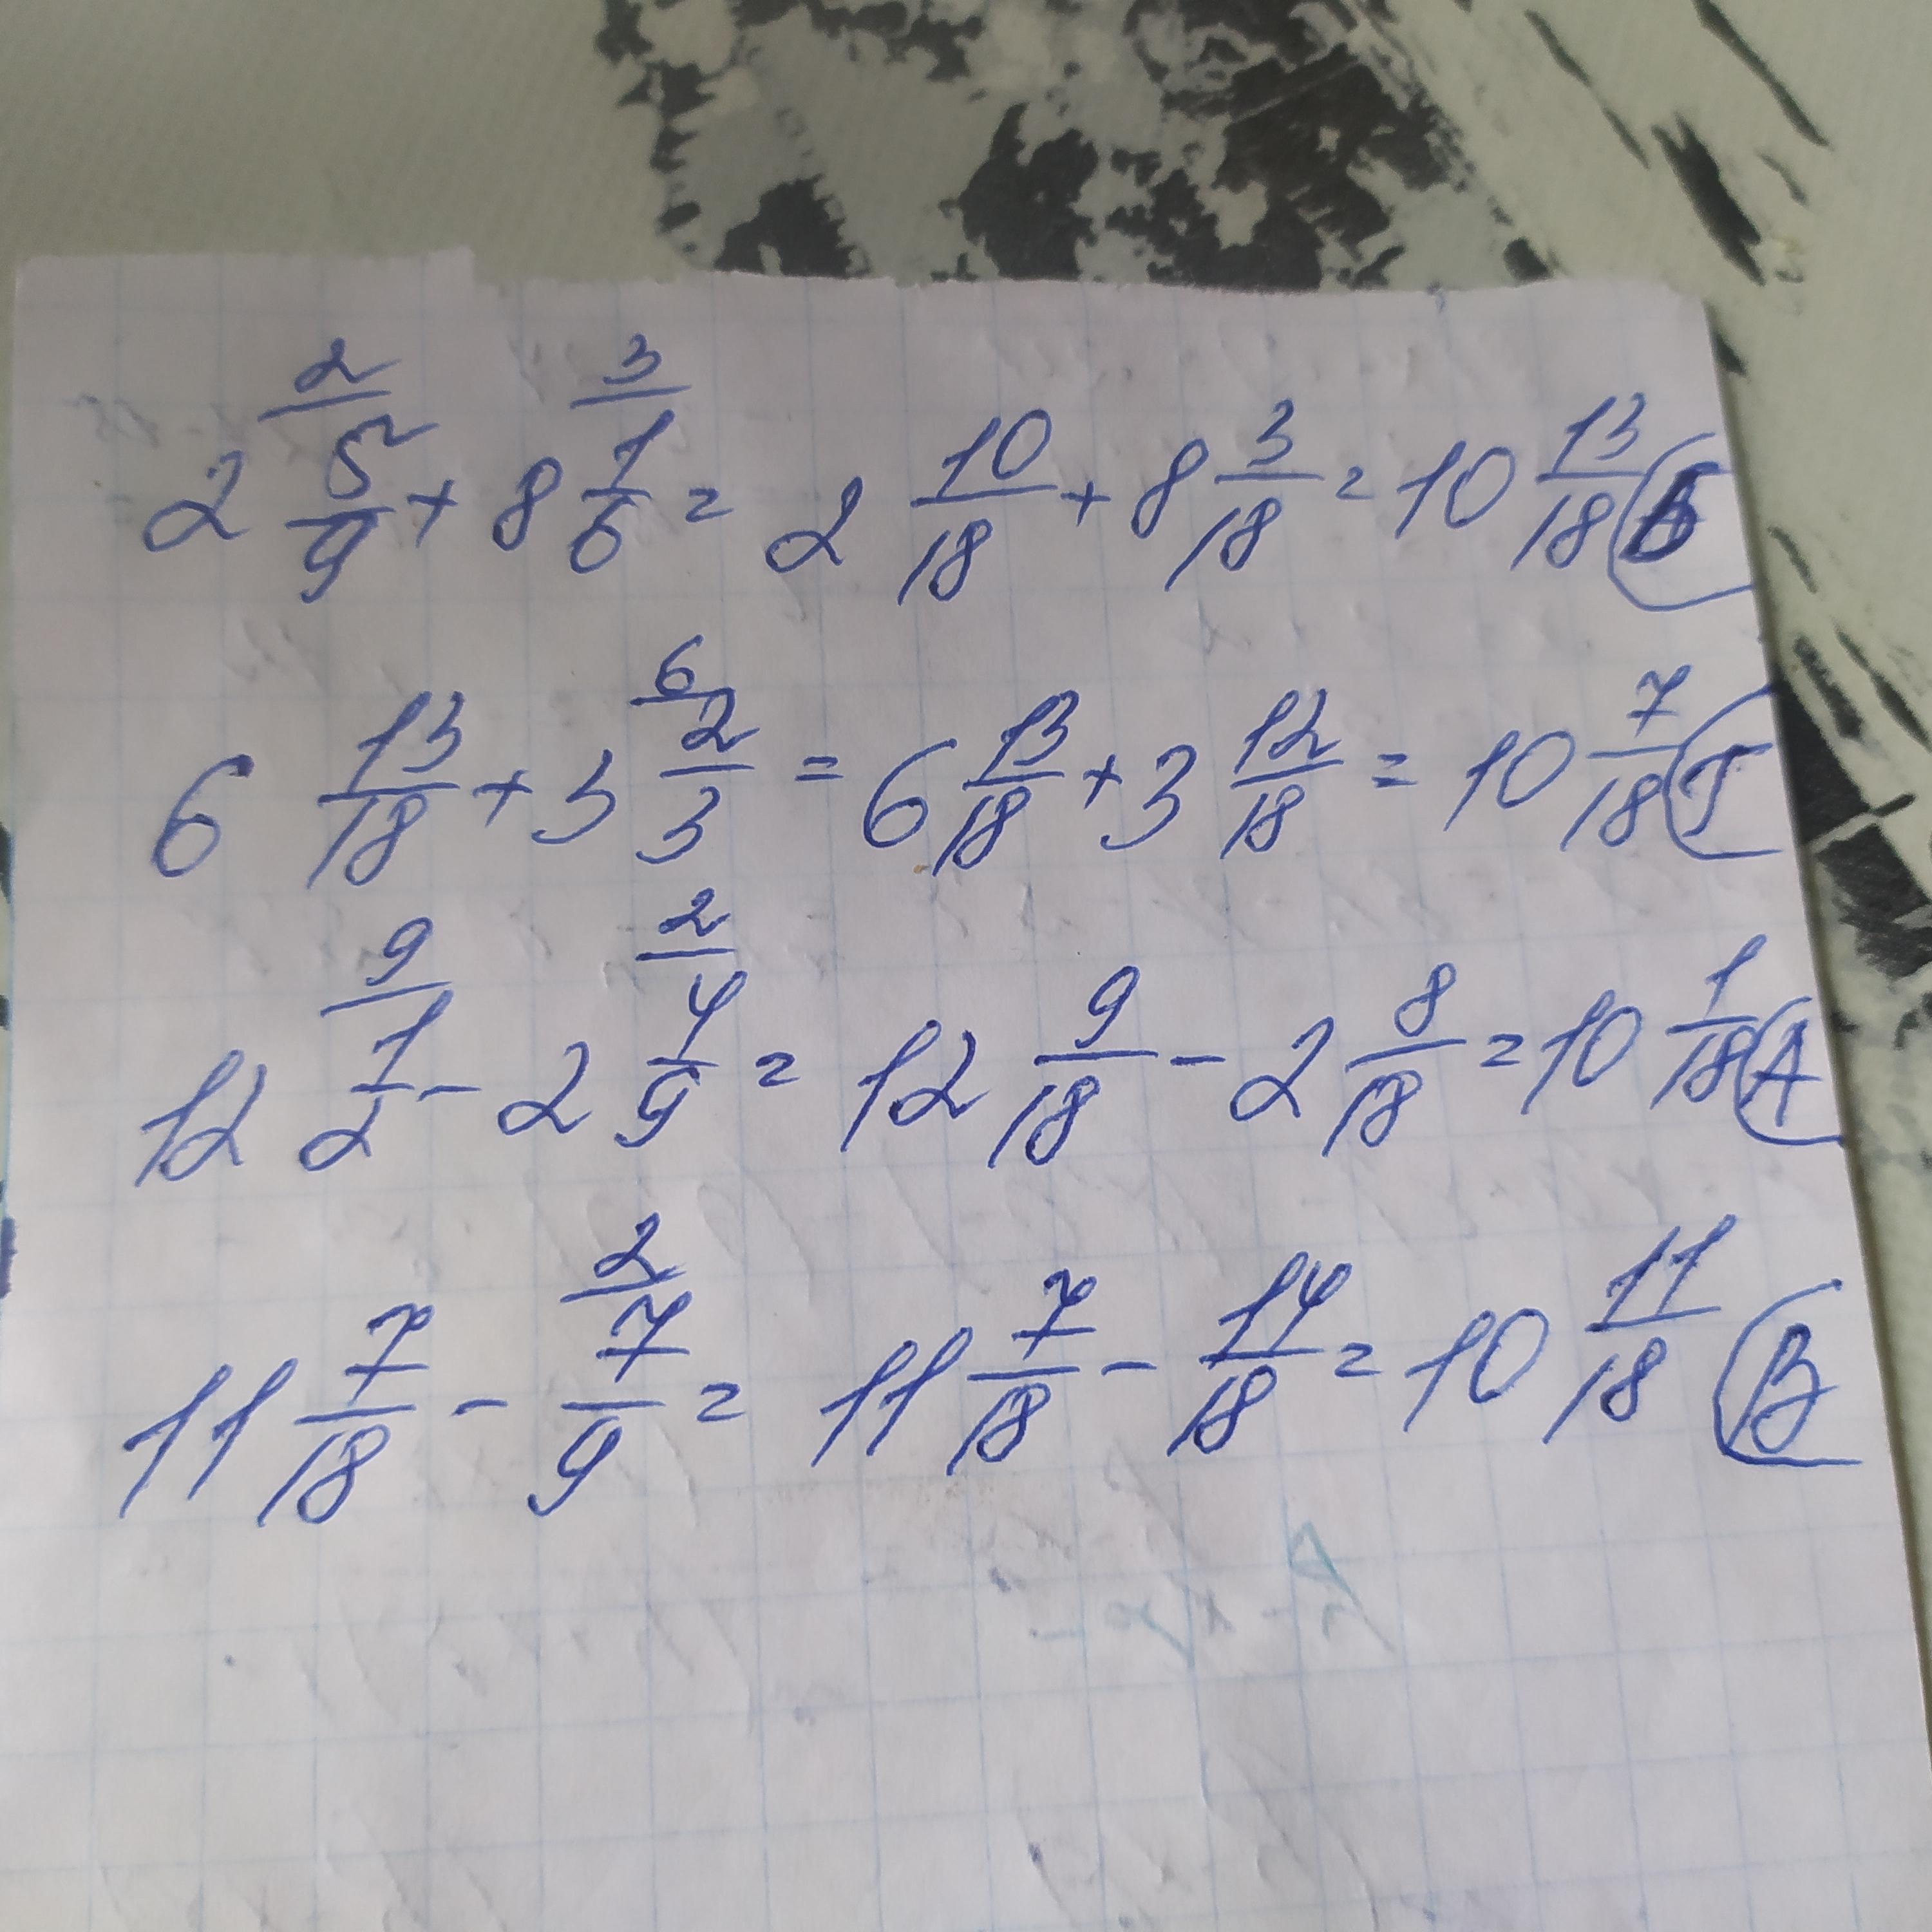 2 5/9 + 8 1/6 = 2 10/18 + 8 3/18 = 10 13/18 (Б
6 13/18 + 3 2/3 = 6 13/18 + 3 12/18 = 10 7/18 (Г
12 1/2 - 2 4/9 = 12 9/18 - 2 8/18 = 10 1/18 (А
11 7/18 - 7/9 = 11 7/18 - 14/18 = 10 11/18 (В